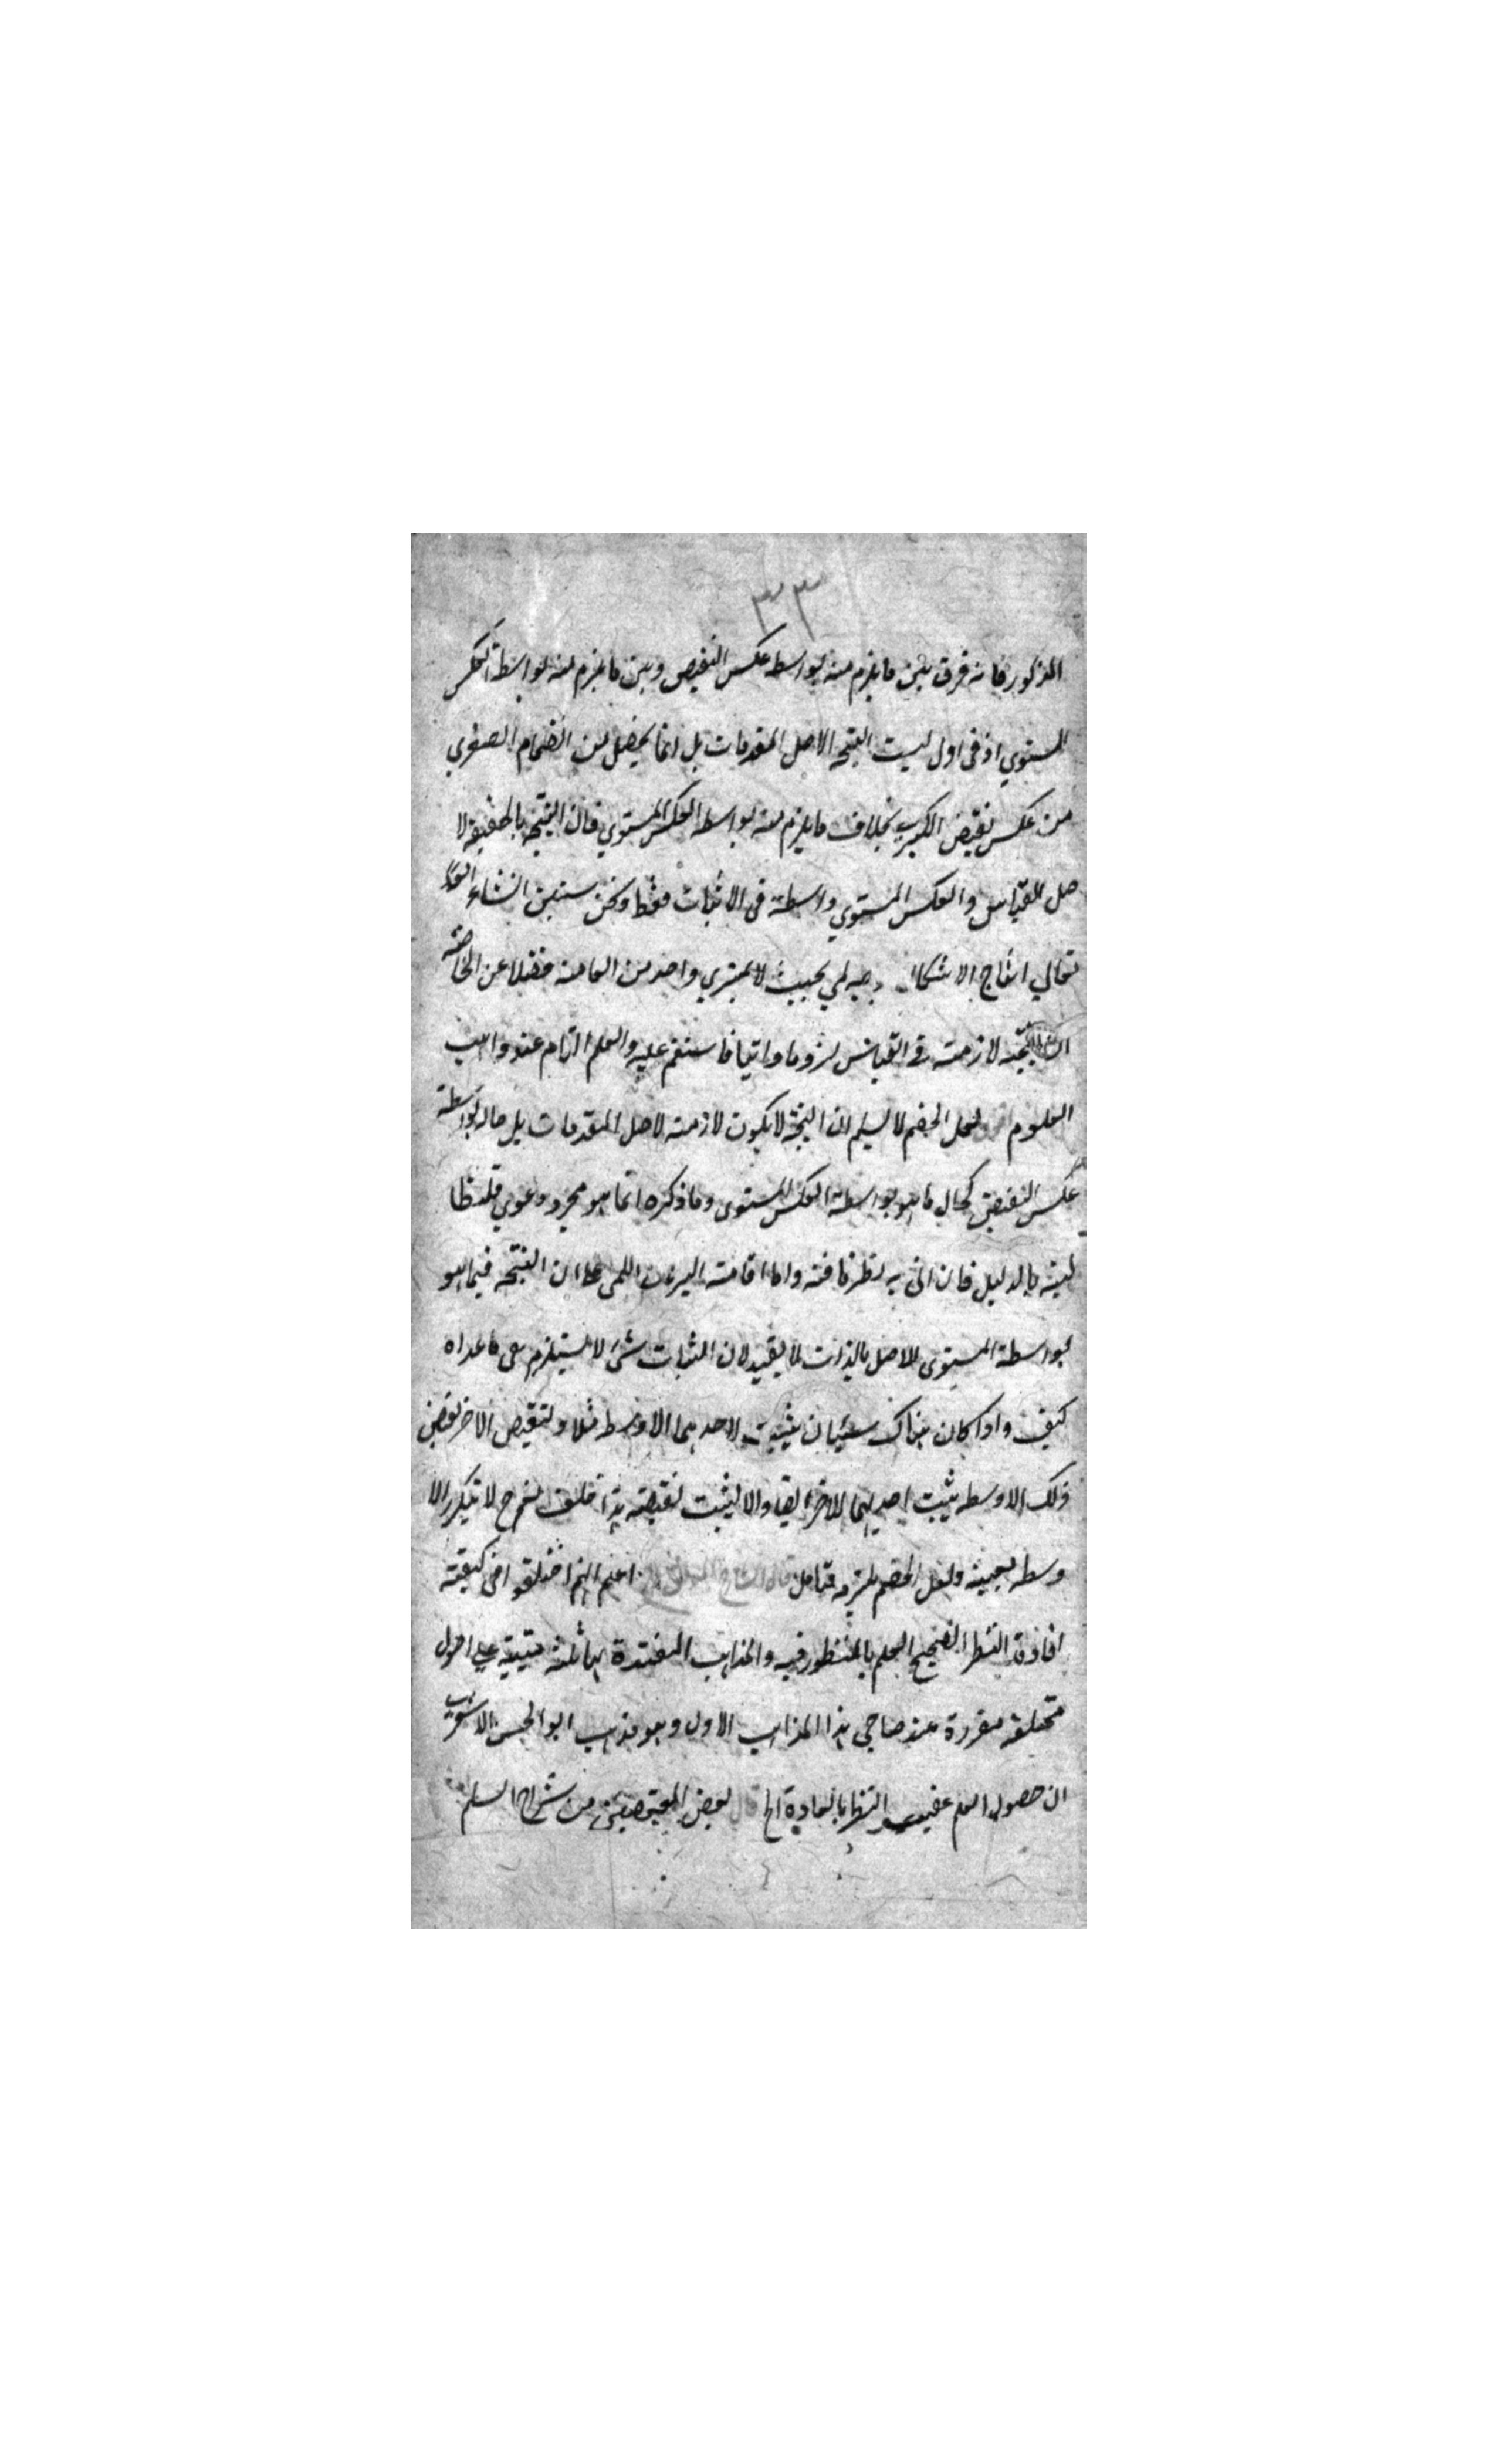 ٣٣
المذكور فانه فرق بين ما يلزم منه بواسطه عكس النقيض وبين ما يلزم منه بواسطة العكس
المستوي اذ فى اول ليست النتيجه الاصل المقدمات بل انما يحصل من انضمام الصغرى
من عكس نقيض الكبرى بخلاف ما يلزم منه بواسطه العكس المستوي فان النتيجة بالحقيقه لا
صل القياس والعكس المستوي واسطة فى الاثبات فقط ونحن سنبين انشاء الله
تعالي انتاج الاشكال بحيث لا يمتري واحد من العامة فضلا عن الخاصة
لازمة فى القياس لزوما والعلم التام عند واهب
العلوم ولعل الخصم لا يسلم ان النتيجة لا يكون لازمة لاصل المقدمات بل حاله بواسطة
عكس النقيض كحال ما هو بواسطة العكس المستوى وما ذكره انما هو مجرد دعوي
بالدليل فان اتى به نظرنا فيه واما اقامته البرهان اللمى على ان النتيجه فيما هو
بواسطة المستوى للاصل بالذات لا يفيد لان اثبات شئ لا يستلزم نفى ما عداه
كيف واذا كان هناك شيئان يثبت لاحدهما الاوسط مثلا ولنقيض الاخر نقيض
ذلك الاوسط يثبت احديهما للاخر ايضا والا ليثبت نقيضه هذا خلف نعم ح لا يتكرر الا
وسط بعينه ولعل الخصم يلتزمه فتامل قال الشارح اعلم انهم اختلفوا فى كيفية
افادة النظر الصحيح العلم بالمنظور فيه والمذاهب المعتدة بها ثلثة مبنية علي اصول
مختلفه مقررة عند صاحبى هذا المذاهب الاول وهو مذهب ابو الحسن الاشعري
ان حصول العلم عقيب النظر بالعادة الخ قال بعض من شراح السلم